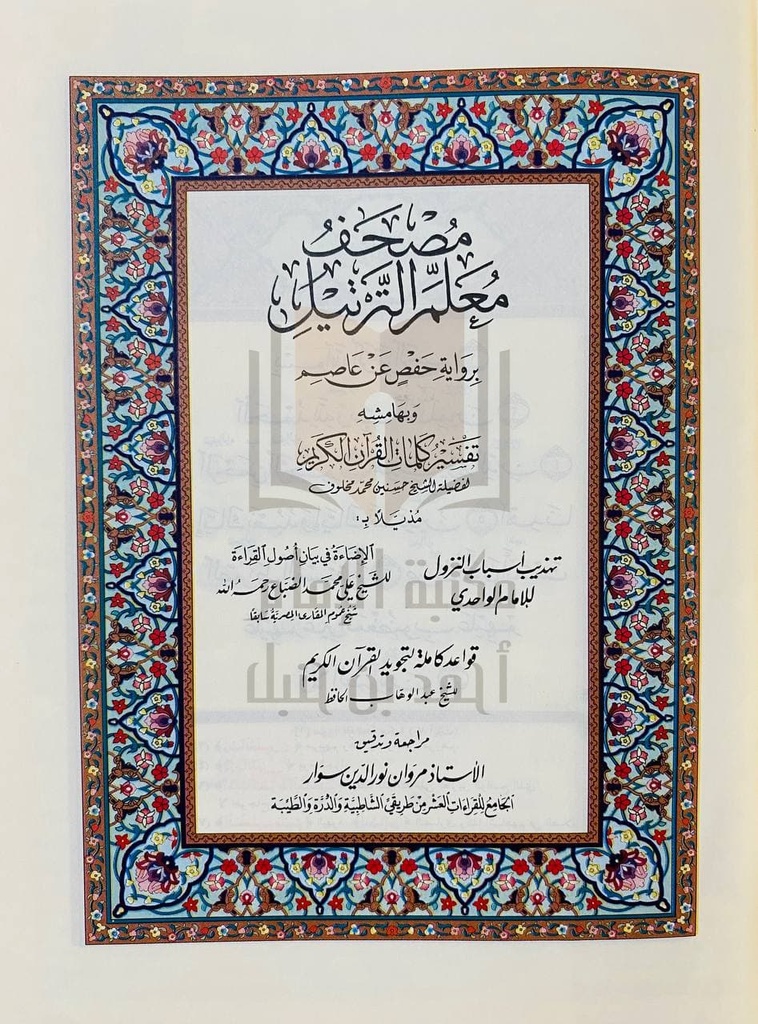 مُصْحَفُ
مُعَلِّمِ التَّرْتِيْلِ
بِرِوَايَةِ حَفْصٍ عَنْ عَاصِمٍ
وَبِهَامِشِهِ
تَفْسِيْرُ كَلِمَاتِ القُرْآنِ الكَرِيْمِ
لفضيلة الشيخ حسنين محمد مخلوف
مُذَيَّلاً بِـ:
تهذيب أسباب النزول
للإمام الواحدي
الإضاءة في بيان أصول القراءة
للشيخ علي محمد الضباع رحمه الله
شيخ عموم المقارئ المصرية سابقاً
قواعد كاملة لتجويد القرآن الكريم
للشيخ عبد الوهاب الحافظ
مراجعة وتدقيق
الأستاذ مروان نور الدين سوار
الجامع للقراءات العشر من طريقي الشاطبية والدرة والطيبة
مكتبة
أحمد بن حنبل